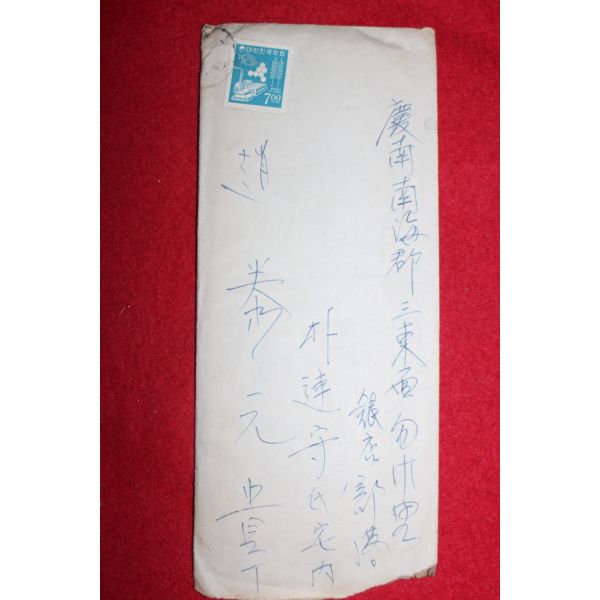 慶南南海郡三東面勿巾里
銀店部落
朴連守氏宅内
趙泰元貴下
대한민국우표
7.00